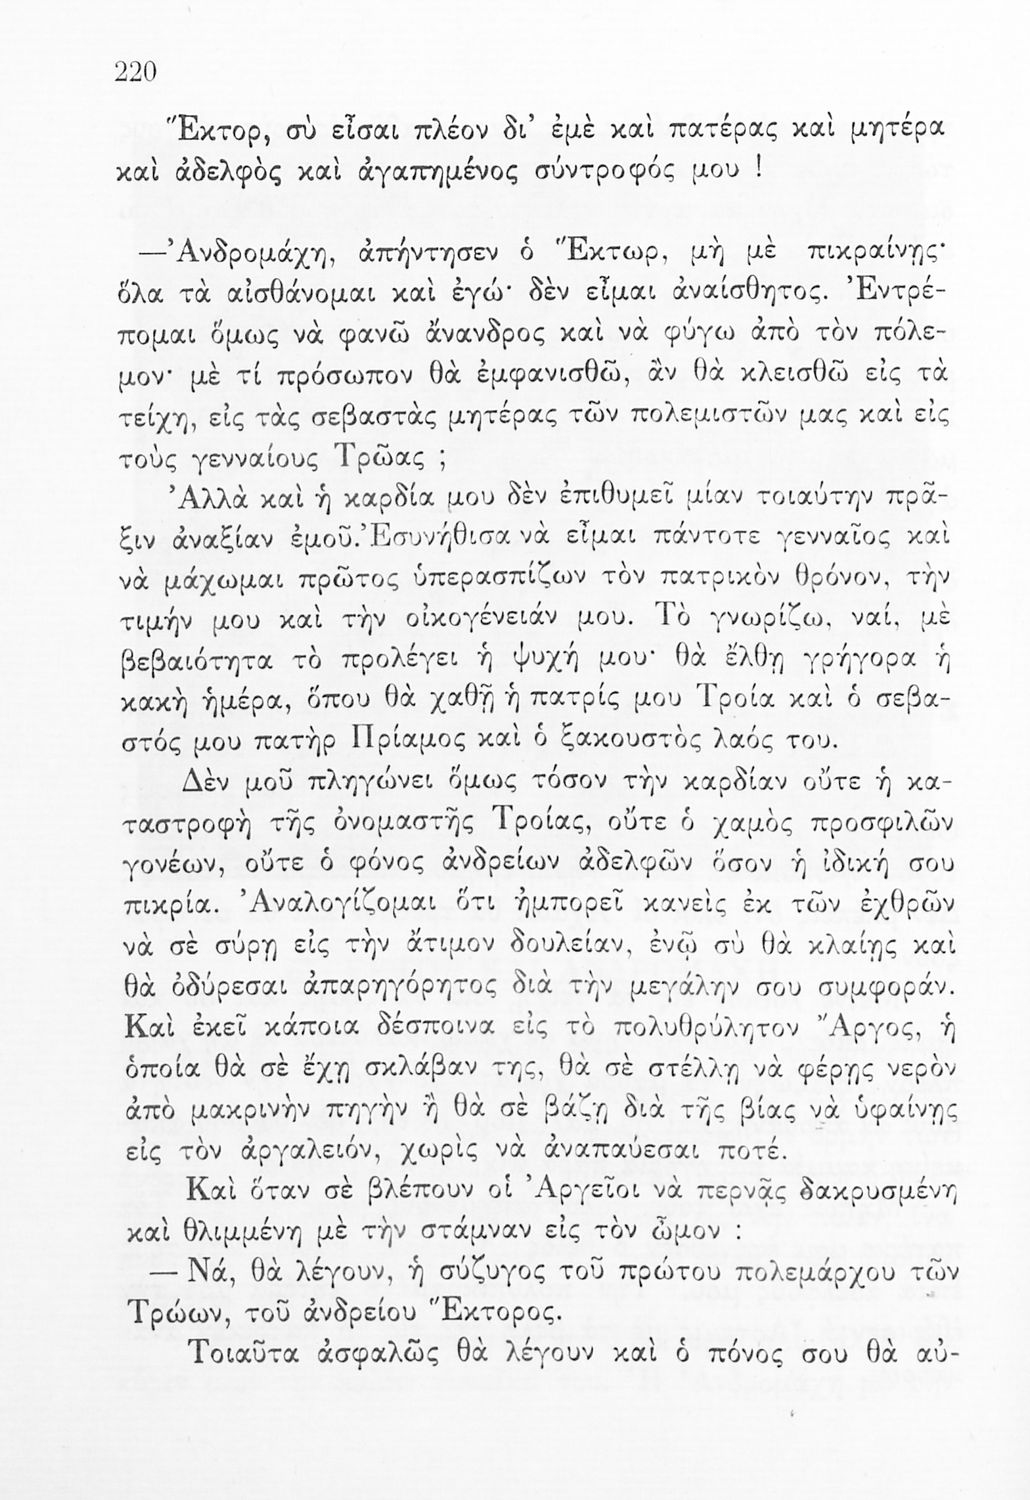 220
Ἕκτορ, σὺ εἶσαι πλέον δι’ ἐμὲ καὶ πατέρας καὶ μητέρα
καὶ ἀδελφὸς καὶ ἀγαπημένος σύντροφός μου !
—Ἀνδρομάχη, ἀπήντησεν ὁ Ἕκτωρ, μὴ μὲ πικραίνῃς·
ὅλα τὰ αἰσθάνομαι καὶ ἐγώ· δὲν εἶμαι ἀναίσθητος. Ἐντρέ-
πομαι ὅμως νὰ φανῶ ἄνανδρος καὶ νὰ φύγω ἀπὸ τὸν πόλε-
μον· μὲ τί πρόσωπον θὰ ἐμφανισθῶ, ἂν θὰ κλεισθῶ εἰς τὰ
τείχη, εἰς τὰς σεβαστὰς μητέρας τῶν πολεμιστῶν μας καὶ εἰς
τοὺς γενναίους Τρῶας ;
Ἀλλὰ καὶ ἡ καρδία μου δὲν ἐπιθυμεῖ μίαν τοιαύτην πρᾶ-
ξιν ἀναξίαν ἐμοῦ. Ἐσυνήθισα νὰ εἶμαι πάντοτε γενναῖος καὶ
νὰ μάχωμαι πρῶτος ὑπερασπίζων τὸν πατρικὸν θρόνον, τὴν
τιμήν μου καὶ τὴν οἰκογένειάν μου. Τὸ γνωρίζω, ναί, μὲ
βεβαιότητα τὸ προλέγει ἡ ψυχή μου· θὰ ἔλθῃ γρήγορα ἡ
κακὴ ἡμέρα, ὅπου θὰ χαθῇ ἡ πατρίς μου Τροία καὶ ὁ σεβα-
στός μου πατὴρ Πρίαμος καὶ ὁ ξακουστὸς λαός του.
Δὲν μοῦ πληγώνει ὅμως τόσον τὴν καρδίαν οὔτε ἡ κα-
ταστροφὴ τῆς ὀνομαστῆς Τροίας, οὔτε ὁ χαμὸς προσφιλῶν
γονέων, οὔτε ὁ φόνος ἀνδρείων ἀδελφῶν ὅσον ἡ ἰδική σου
πικρία. Ἀναλογίζομαι ὅτι ἠμπορεῖ κανεὶς ἐκ τῶν ἐχθρῶν
νὰ σὲ σύρῃ εἰς τὴν ἄτιμον δουλείαν, ἐνῷ σὺ θὰ κλαίῃς καὶ
θὰ ὀδύρεσαι ἀπαρηγόρητος διὰ τὴν μεγάλην σου συμφοράν.
Καὶ ἐκεῖ κάποια δέσποινα εἰς τὸ πολυθρύλητον Ἄργος, ἡ
ὁποία θὰ σὲ ἔχῃ σκλάβαν της, θὰ σὲ στέλλῃ νὰ φέρῃς νερὸν
ἀπὸ μακρινὴν πηγὴν ἢ θὰ σὲ βάζῃ διὰ τῆς βίας νὰ ὑφαίνῃς
εἰς τὸν ἀργαλειόν, χωρὶς νὰ ἀναπαύεσαι ποτέ.
Καὶ ὅταν σὲ βλέπουν οἱ Ἀργεῖοι νὰ περνᾷς δακρυσμένη
καὶ θλιμμένη μὲ τὴν στάμναν εἰς τὸν ὦμον :
— Νά, θὰ λέγουν, ἡ σύζυγος τοῦ πρώτου πολεμάρχου τῶν
Τρώων, τοῦ ἀνδρείου Ἕκτορος.
Τοιαῦτα ἀσφαλῶς θὰ λέγουν καὶ ὁ πόνος σου θὰ αὐ-